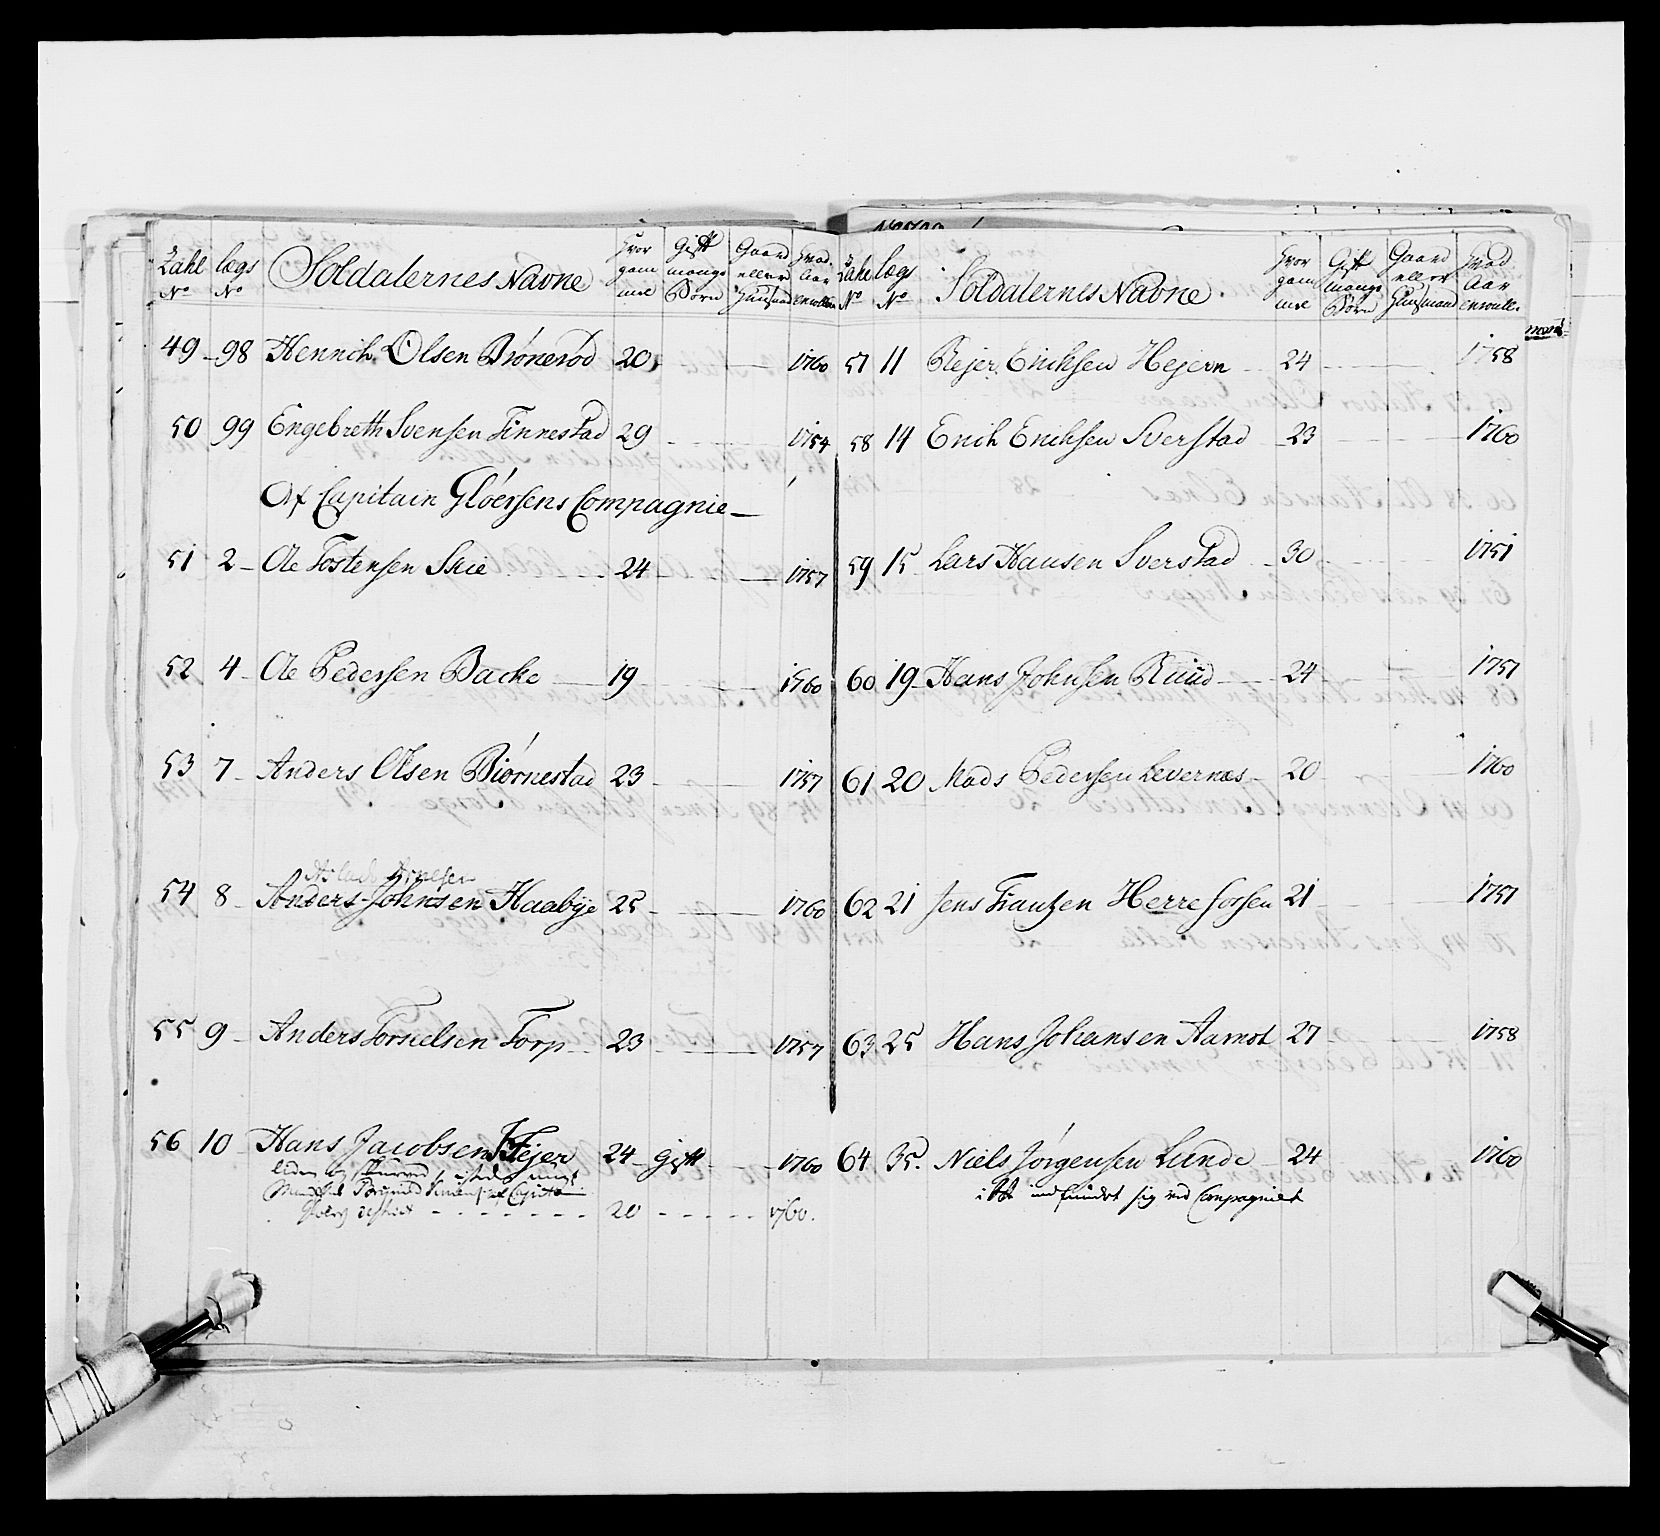 Zahl No
lægs No
Soldaternes Navne
Hvor gamme
Gift mange Børn
Gaard eller Huusmand
Hvad Aar enroull.
49 98 Henrich Olsen Brönerød 20 1760
50 99 Engebreth Svensen Finnestad 29 1754
Af Capitain Glóersens Compagnie
51 2 Ole Tostensen Skie 24 1757
52 4 Ole Pedersen Backe 19 1760
53 7 Anders Olsen Biørnestad 23 1757
Aslach Arnesen
54 8 Anders Johnsen Haabye 25 1760
55 9 Anders Torkielsen Torp 23 1757
56 10 Hans Jacobsen Hejer 24 Gift 1760
20 1760.
Zahl No
lægs No
Soldaternes Navne
Hvor gam me
Gift mange Børn
Gaard eller Huusmand
Hvad Aar enroull.
57 11 Rejer Erichsen Hejern 24 1758
58 14 Erich Erichsen Sverstad 23 1760
59 15 Lars Hansen Sverstad 30 1751
60 19 Hans Johnsen Ruud 24 1757
61 20 Mads Pedersen Levernæs 20 1760
62 21 Jens Frantzen Herrefossen 21 1757
63 25 Hans Johansen Aamot 27 1758
64 35. Niels Jørgensen Lunde 24 1760
indfundet sig ved Compagniet